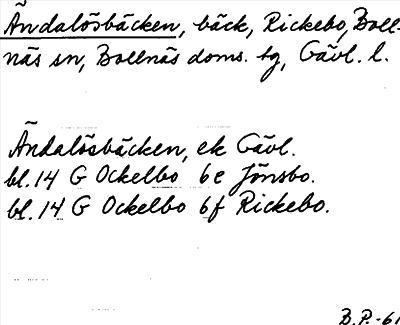 Ändalösbäcken, bäck, Rickebo, Boll-
näs sn, Bollnäs doms. tg, Gävl. l.
Ändalösbäcken, ek Gävl.
bl. 14 G Ockelbo 6e Jönsbo.
bl. 14 G Ockelbo 6f Rickebo.
B.P.-61